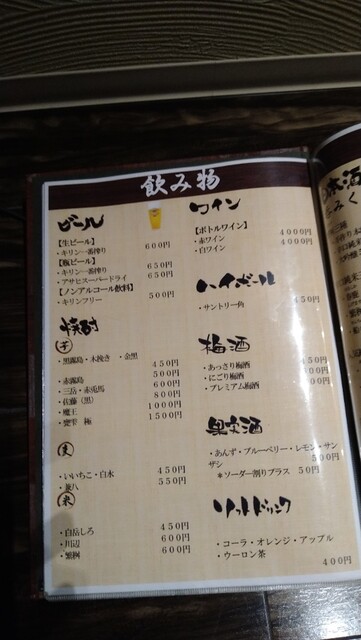 飲み物
ビール
【生ビール】
・キリン一番搾り 600円
【瓶ビール】
・キリン一番搾り 650円
・アサヒスーパードライ 650円
【ノンアルコール飲料】
・キリンフリー 500円
焼酎
芋
・黒霧島・木挽き・金黒 450円
・赤霧島 500円
・三岳・赤兎馬 600円
・佐藤(黒) 800円
・魔王 1000円
・甕雫 極 1500円
麦
・いいちこ・白水 450円
・兼八 550円
米
・白岳しろ 450円
・川辺 600円
・繁桝 600円
ワイン
【ボトルワイン】
・赤ワイン 4000円
・白ワイン 4000円
ハイボール
・サントリー角 450円
梅酒
・あっさり梅酒 450円
・にごり梅酒 500円
・プレミアム梅酒 700円
果実酒
・あんず・ブルーベリー・レモン・サン
ザシ 500円
*ソーダー割りプラス 50円
ソフトドリンク
・コーラ・オレンジ・アップル
・ウーロン茶
400円
本酒